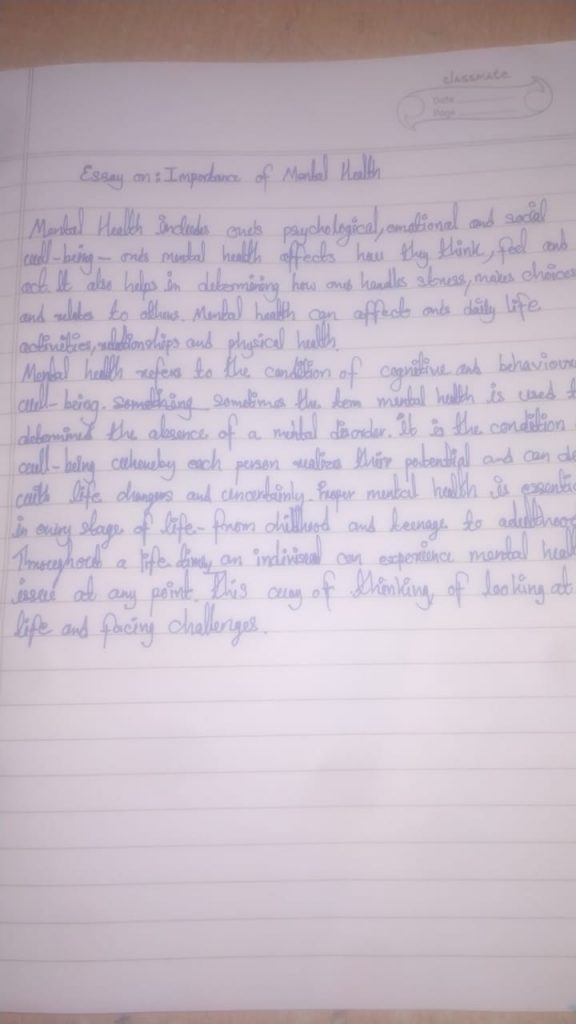 classmate
Date
Page
Essay on: Importance of Mental Health
Mental Health includes one's psychological, emotional and social
well-being - ones mental health affects how they think, feel and
act. It also helps in determining how one handles stress, makes choices
and relates to others. Mental health can affect ones daily life
activities, relationships and physical health.
Mental health refers to the condition of cognitive and behaviour
well-being. something sometimes the term mental health is used t
determined the absence of a mental disorder. it is the condition
well-being whereby each person realizes their potential and can de
with life changes and uncertainly. Proper mental health is essentia
in every stage of life - from childhood and teenage to adulthood
Throughout a life an individual can experience mental heal
issue at any point. This way of thinking, of looking at
life and facing challenges.